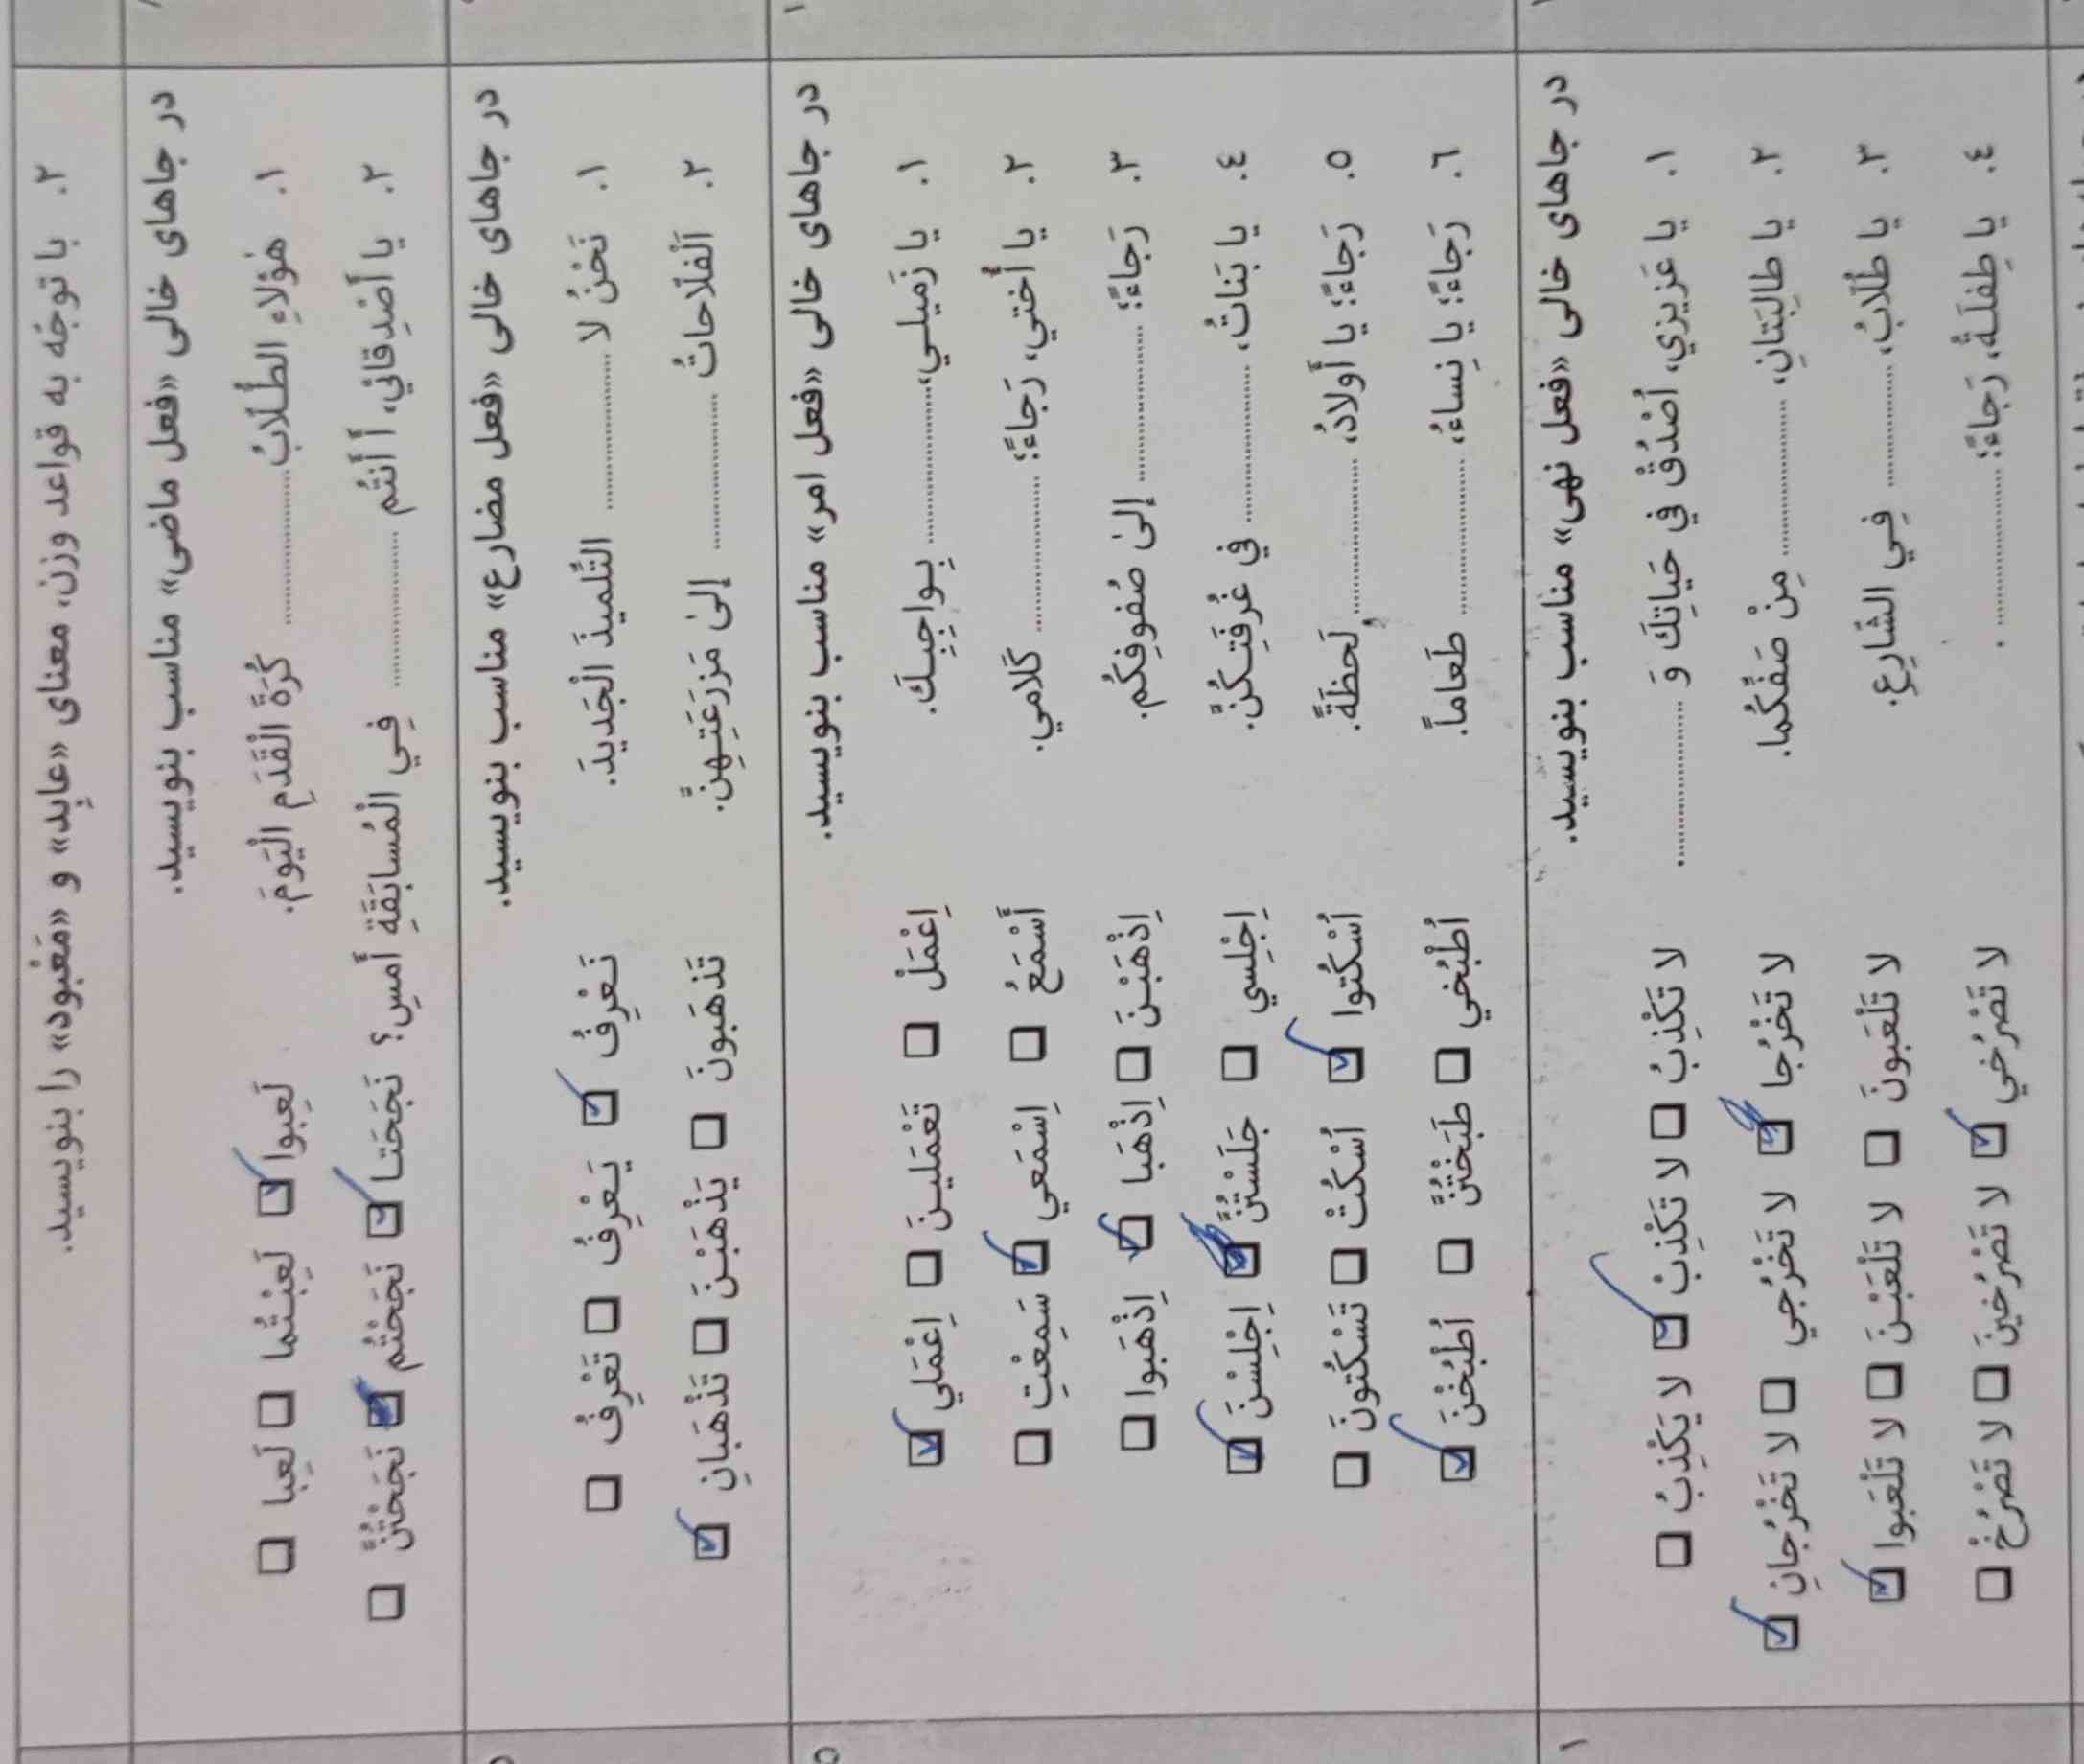 ۲. با توجّه به قواعد وزن، معنای «عابِد» و «مَعْبود» را بنویسید.
در جاهای خالی «فعل ماضی» مناسب بنویسید.
۱. هٰؤُلاءِ الطُّلّابُ .............. كُرَةَ الْقَدَمِ الْيَوْمَ. لَعِبوا ☑ لَعِبْتُما ☐ لَعِبا ☐
۲. يا أَصْدِقائي، أَ أَنْتُم .............. فِي الْمُسابَقَةِ أَمسِ؟ نَجَحَتا ☑ نَجَحْتُم ☑ نَجَحْتُنَّ ☐
در جاهای خالی «فعل مضارع» مناسب بنویسید.
۱. نَحْنُ لا .............. التِّلميذَ الْجَديدَ. نَعْرِفُ ☑ يَعْرِفُ ☐ تَعْرِفُ ☐
۲. اَلْفَلّاحاتُ .............. إلىٰ مَزرَعَتِهِنَّ. تَذهَبونَ ☐ يَذْهَبْنَ ☐ تَذْهَبانِ ☑
در جاهای خالی «فعل امر» مناسب بنویسید.
۱. يا زَميلي، .............. بِواجِبِكَ. اِعْمَلْ ☐ تَعْمَلينَ ☐ اِعْمَلي ☑
۲. يا أُختي، رَجاءً؛ .............. كَلامي. أَسْمَعُ ☐ اِسْمَعي ☑ سَمِعْتِ ☐
۳. رَجاءً؛ .............. إلىٰ صُفوفِكُم. اِذْهَبْنَ ☐ اِذْهَبا ☑ اِذْهَبوا ☐
٤. يا بَناتُ، .............. في غُرفَتِكُنَّ. اِجْلِسي ☐ جَلَسْتُنَّ ☑ اِجْلِسْنَ ☑
٥. رَجاءً؛ يا أَولادُ، .............. لَحظَةً. اُسْكُتوا ☑ اُسْكُتْ ☐ تَسْكُتونَ ☐
٦. رَجاءً؛ يا نِساءُ، .............. طَعاماً. اُطْبُخي ☐ طَبَخْتُنَّ ☐ اُطْبُخْنَ ☑
در جاهای خالی «فعل نهی» مناسب بنویسید.
۱. يا عَزيزي، اُصْدُقْ في حَياتِكَ وَ .............. . لا تَكْذِبُ ☐ لا تَكْذِبْ ☑ لا يَكْذِبُ ☐
۲. يا طالِبَتانِ، .............. مِنْ صَفِّكُما. لا تَخْرُجا ☑ لا تَخْرُجي ☐ لا تَخْرُجانِ ☑
۳. يا طُلّابُ، .............. فِي الشّارِعِ. لا تَلْعَبونَ ☐ لا تَلْعَبْنَ ☐ لا تَلْعَبوا ☑
٤. يا طِفلَةُ، رَجاءً؛ .............. . لا تَصْرُخي ☑ لا تَصْرُخينَ ☐ لا تَصْرُخْ ☐